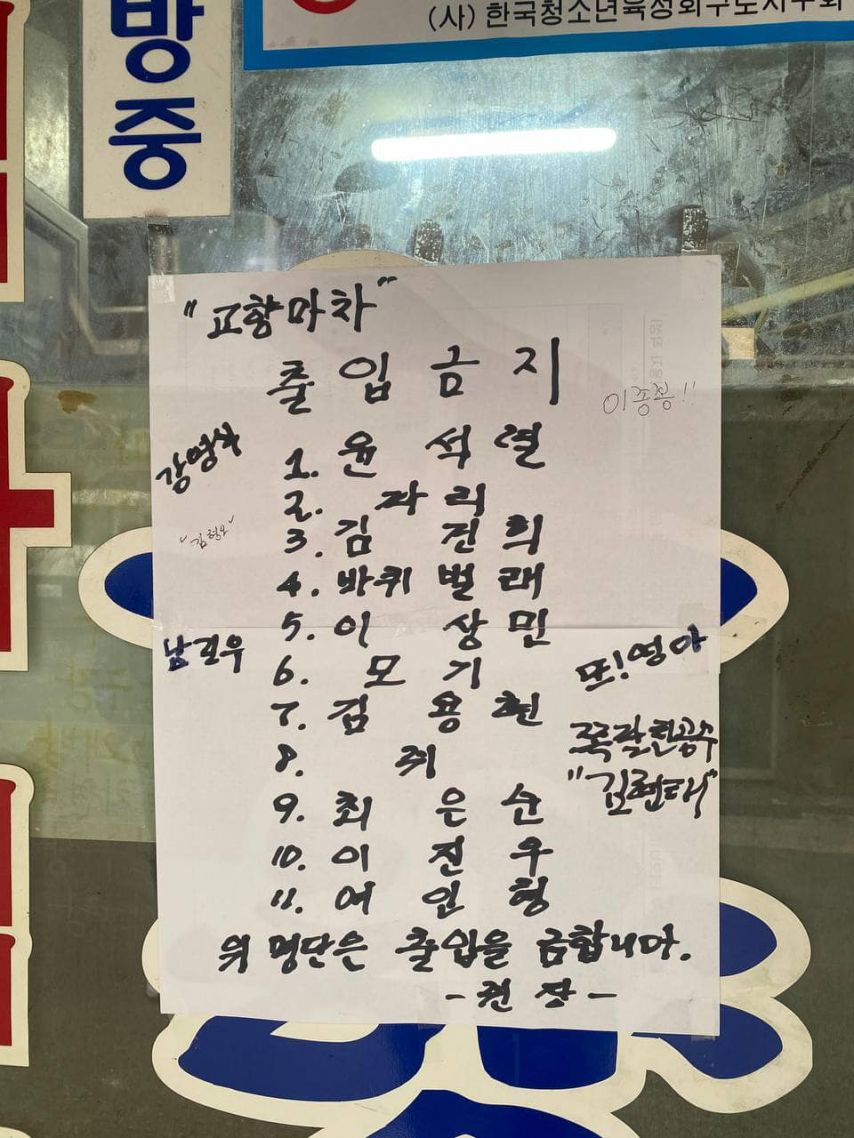 방중
(사) 한국청소년육성회구로지구회
"고향마차"
출입금지
이종봉!!
강명식
1. 윤석열
2. 파리
"김형오"
3. 김건희
4. 바퀴벌레
5. 이상민
남길우
6. 모기
또!영아
7. 김용현
쪽팔린줄
8. 쥐
"김현태"
9. 최은순
10. 이진우
11. 여인형
위 명단은 출입을 금합니다.
- 쥔장 -